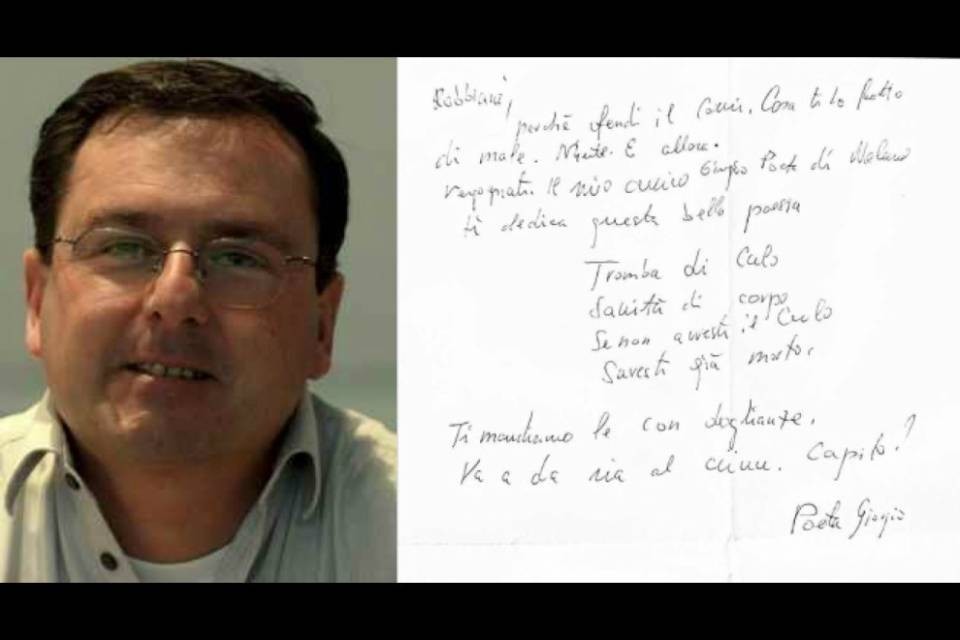 Robbiani,
perchè ofendi il Cours. Cosa ti lo fatto
di male. Niente. E allora.
vergognati. Il mio cucino Giorgio Poeta di Melano
ti dedica questa bella poesia
Tromba di Culo
Sanità di corpo
Se non avresti il Culo
Saresti già morto.
Ti mandiamo le con doglianze.
Va a da via al ciuu. Capito?
Poeta Giorgio